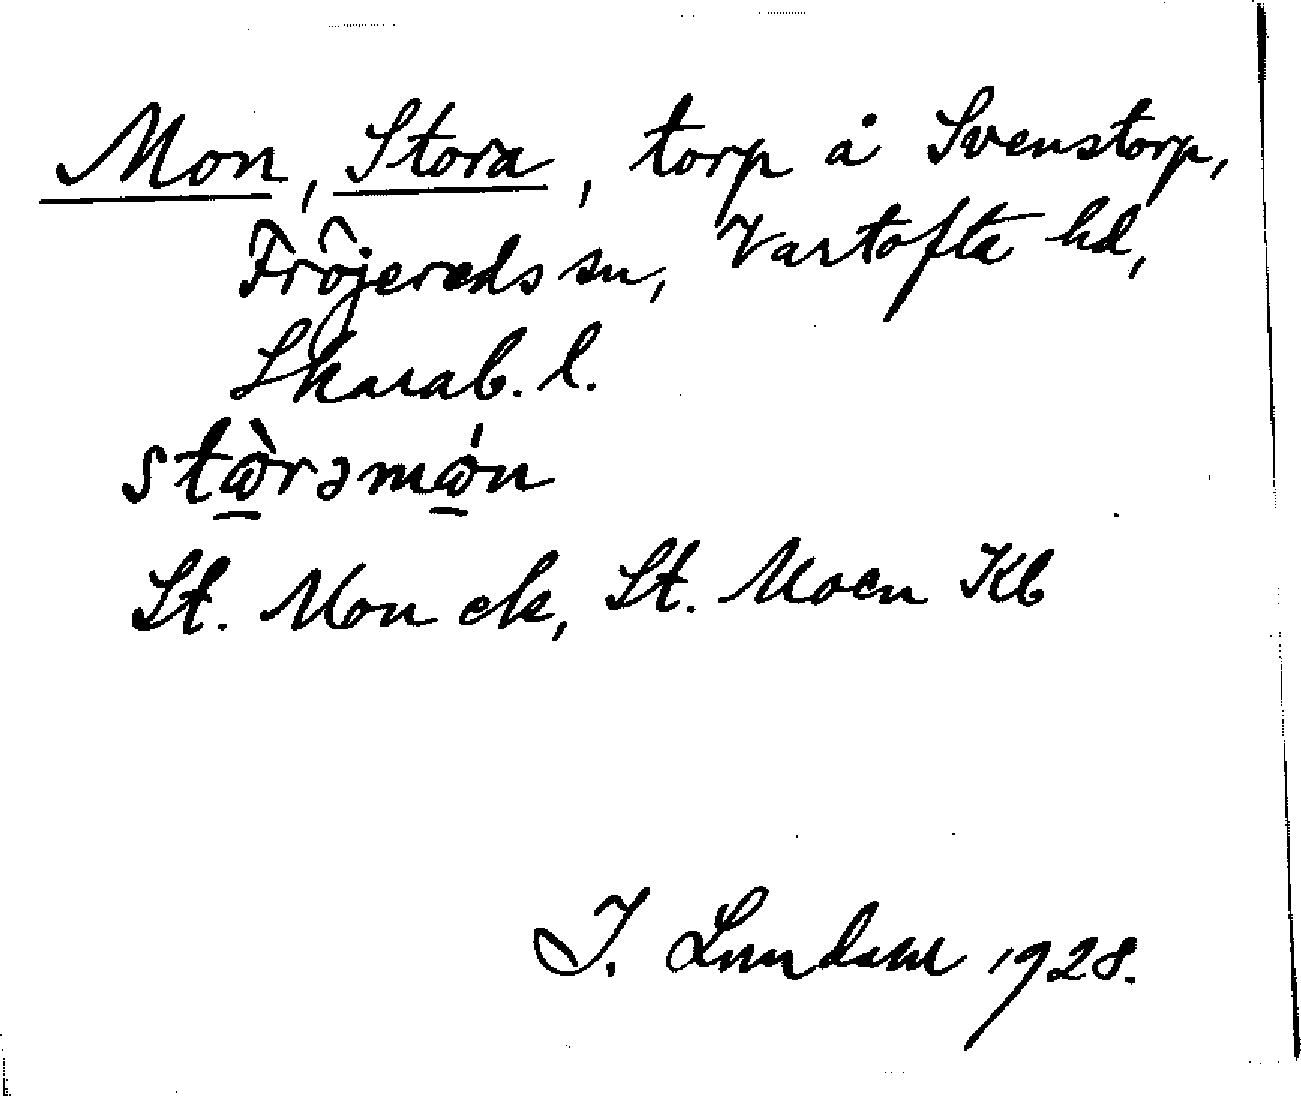 Mon, Stora, torp å Svenstorp,
Fröjereds sn, Vartofta hd,
Skarab. l.
stὼ̲rəmώ̲n
St. Mon ek, St. Moen Kb
I. Lundahl 1928.